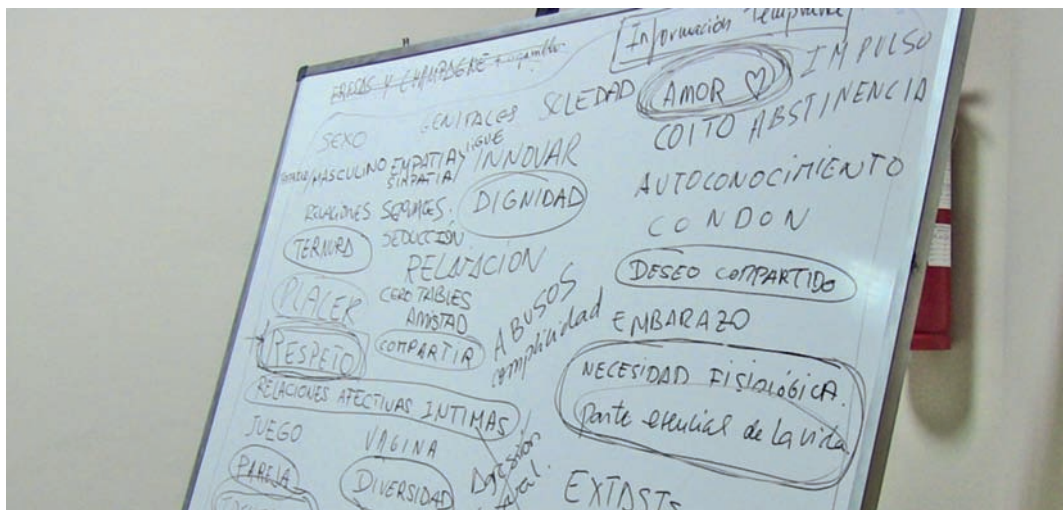 FRESAS Y CHAMPAGNE
Información Temprana
SEXO
GENITALES
SOLEDAD
AMOR ♡
IMPULSO
LIGUE
COITO
ABSTINENCIA
/MASCULINO
EMPATIA/
SIMPATIA
INNOVAR
AUTOCONOCIMIENTO
RELACIONES SEXUALES.
DIGNIDAD
SEDUCCIÓN
CONDON
TERNURA
RELAJACIÓN
DESEO COMPARTIDO
PLACER
CERO TABUES
AMISTAD
ABUSOS
complicidad
EMBARAZO
RESPETO
COMPARTIR
NECESIDAD FISIOLÓGICA.
parte esencial de la vida
RELACIONES AFECTIVAS INTIMAS
JUEGO
VAGINA
Agresión
PAREJA
DIVERSIDAD
EXTASIS